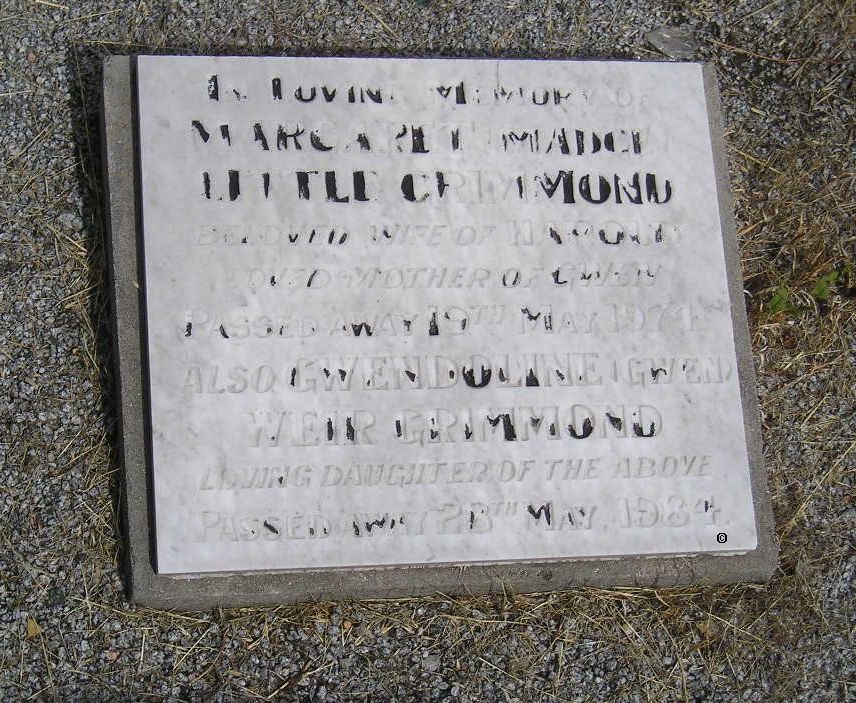 IN LOVING MEMORY OF
MARGARET MADGE
LITTLE GRIMMOND
BELOVED WIFE OF HAROLD
LOVED MOTHER OF GWEN
PASSED AWAY 19TH MAY
ALSO GWENDOLINE (GWEN)
WEIR GRIMMOND
LOVING DAUGHTER OF THE ABOVE
PASSED AWAY 28TH MAY, 1984.
©